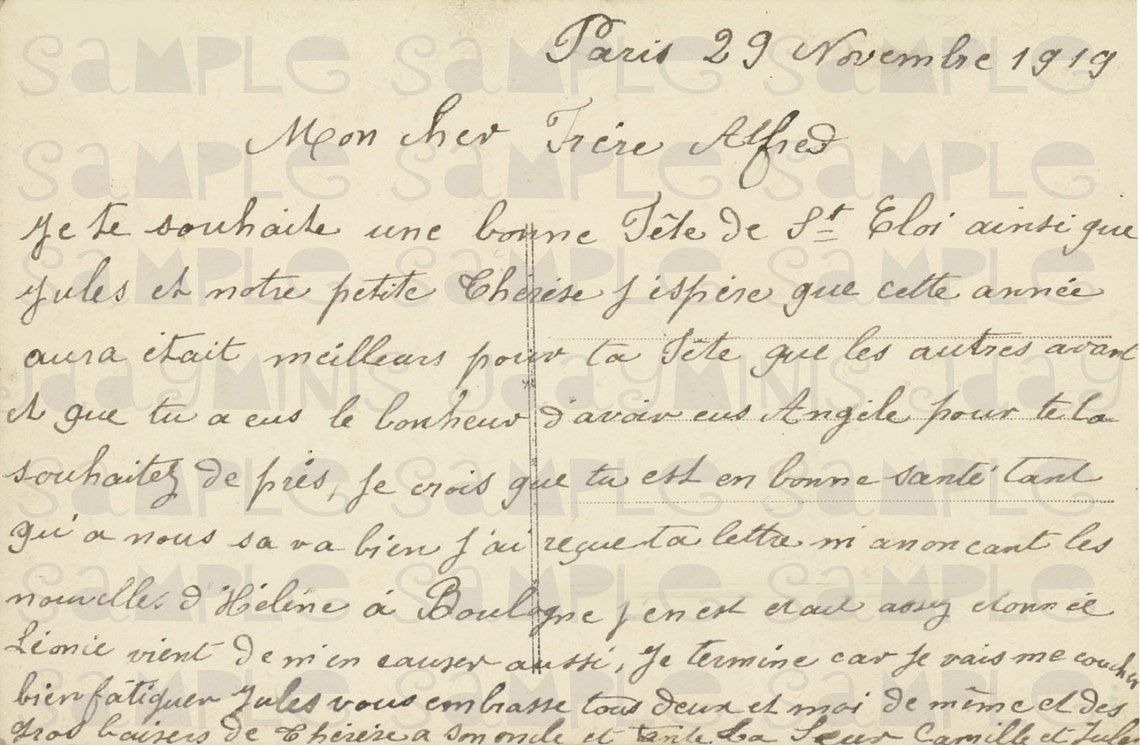 Paris 29 Novembre 1919
Mon cher Frère Alfred
Je te souhaite une bonne Fête de St Eloi ainsi que
Jules et notre petite Thérèse j'espère que cette année
aura était meilleurs pour ta Fête que les autres avant
et que tu a eus le bonheur d'avoir eus Angèle pour te la
souhaitez de près, Je crois que tu est en bonne santé tant
qu'a nous sa va bien j'ai reçue ta lettre m'anoncant les
nouvelles d'Hélène à Boulogne j'en est etait assez etonnée
Léonie vient de m'en causer aussi, Je termine car je vais me coucher
bien fatiguer Jules vous embrasse tous deux et moi de même et des
gros baisers de Thérèse a son oncle et tante La Sœur Camille et Jules
SAMPLE SAMPLE SAMPLE
SAMPLE SAMPLE SAMPLE
SAMPLE SAMPLE SAMPLE
JdayMINIS JdayMINIS Jday
SAMPLE SAMPLE SAMPLE
SAMPLE SAMPLE SAMPLE
SAMPLE SAMPLE SAMPLE